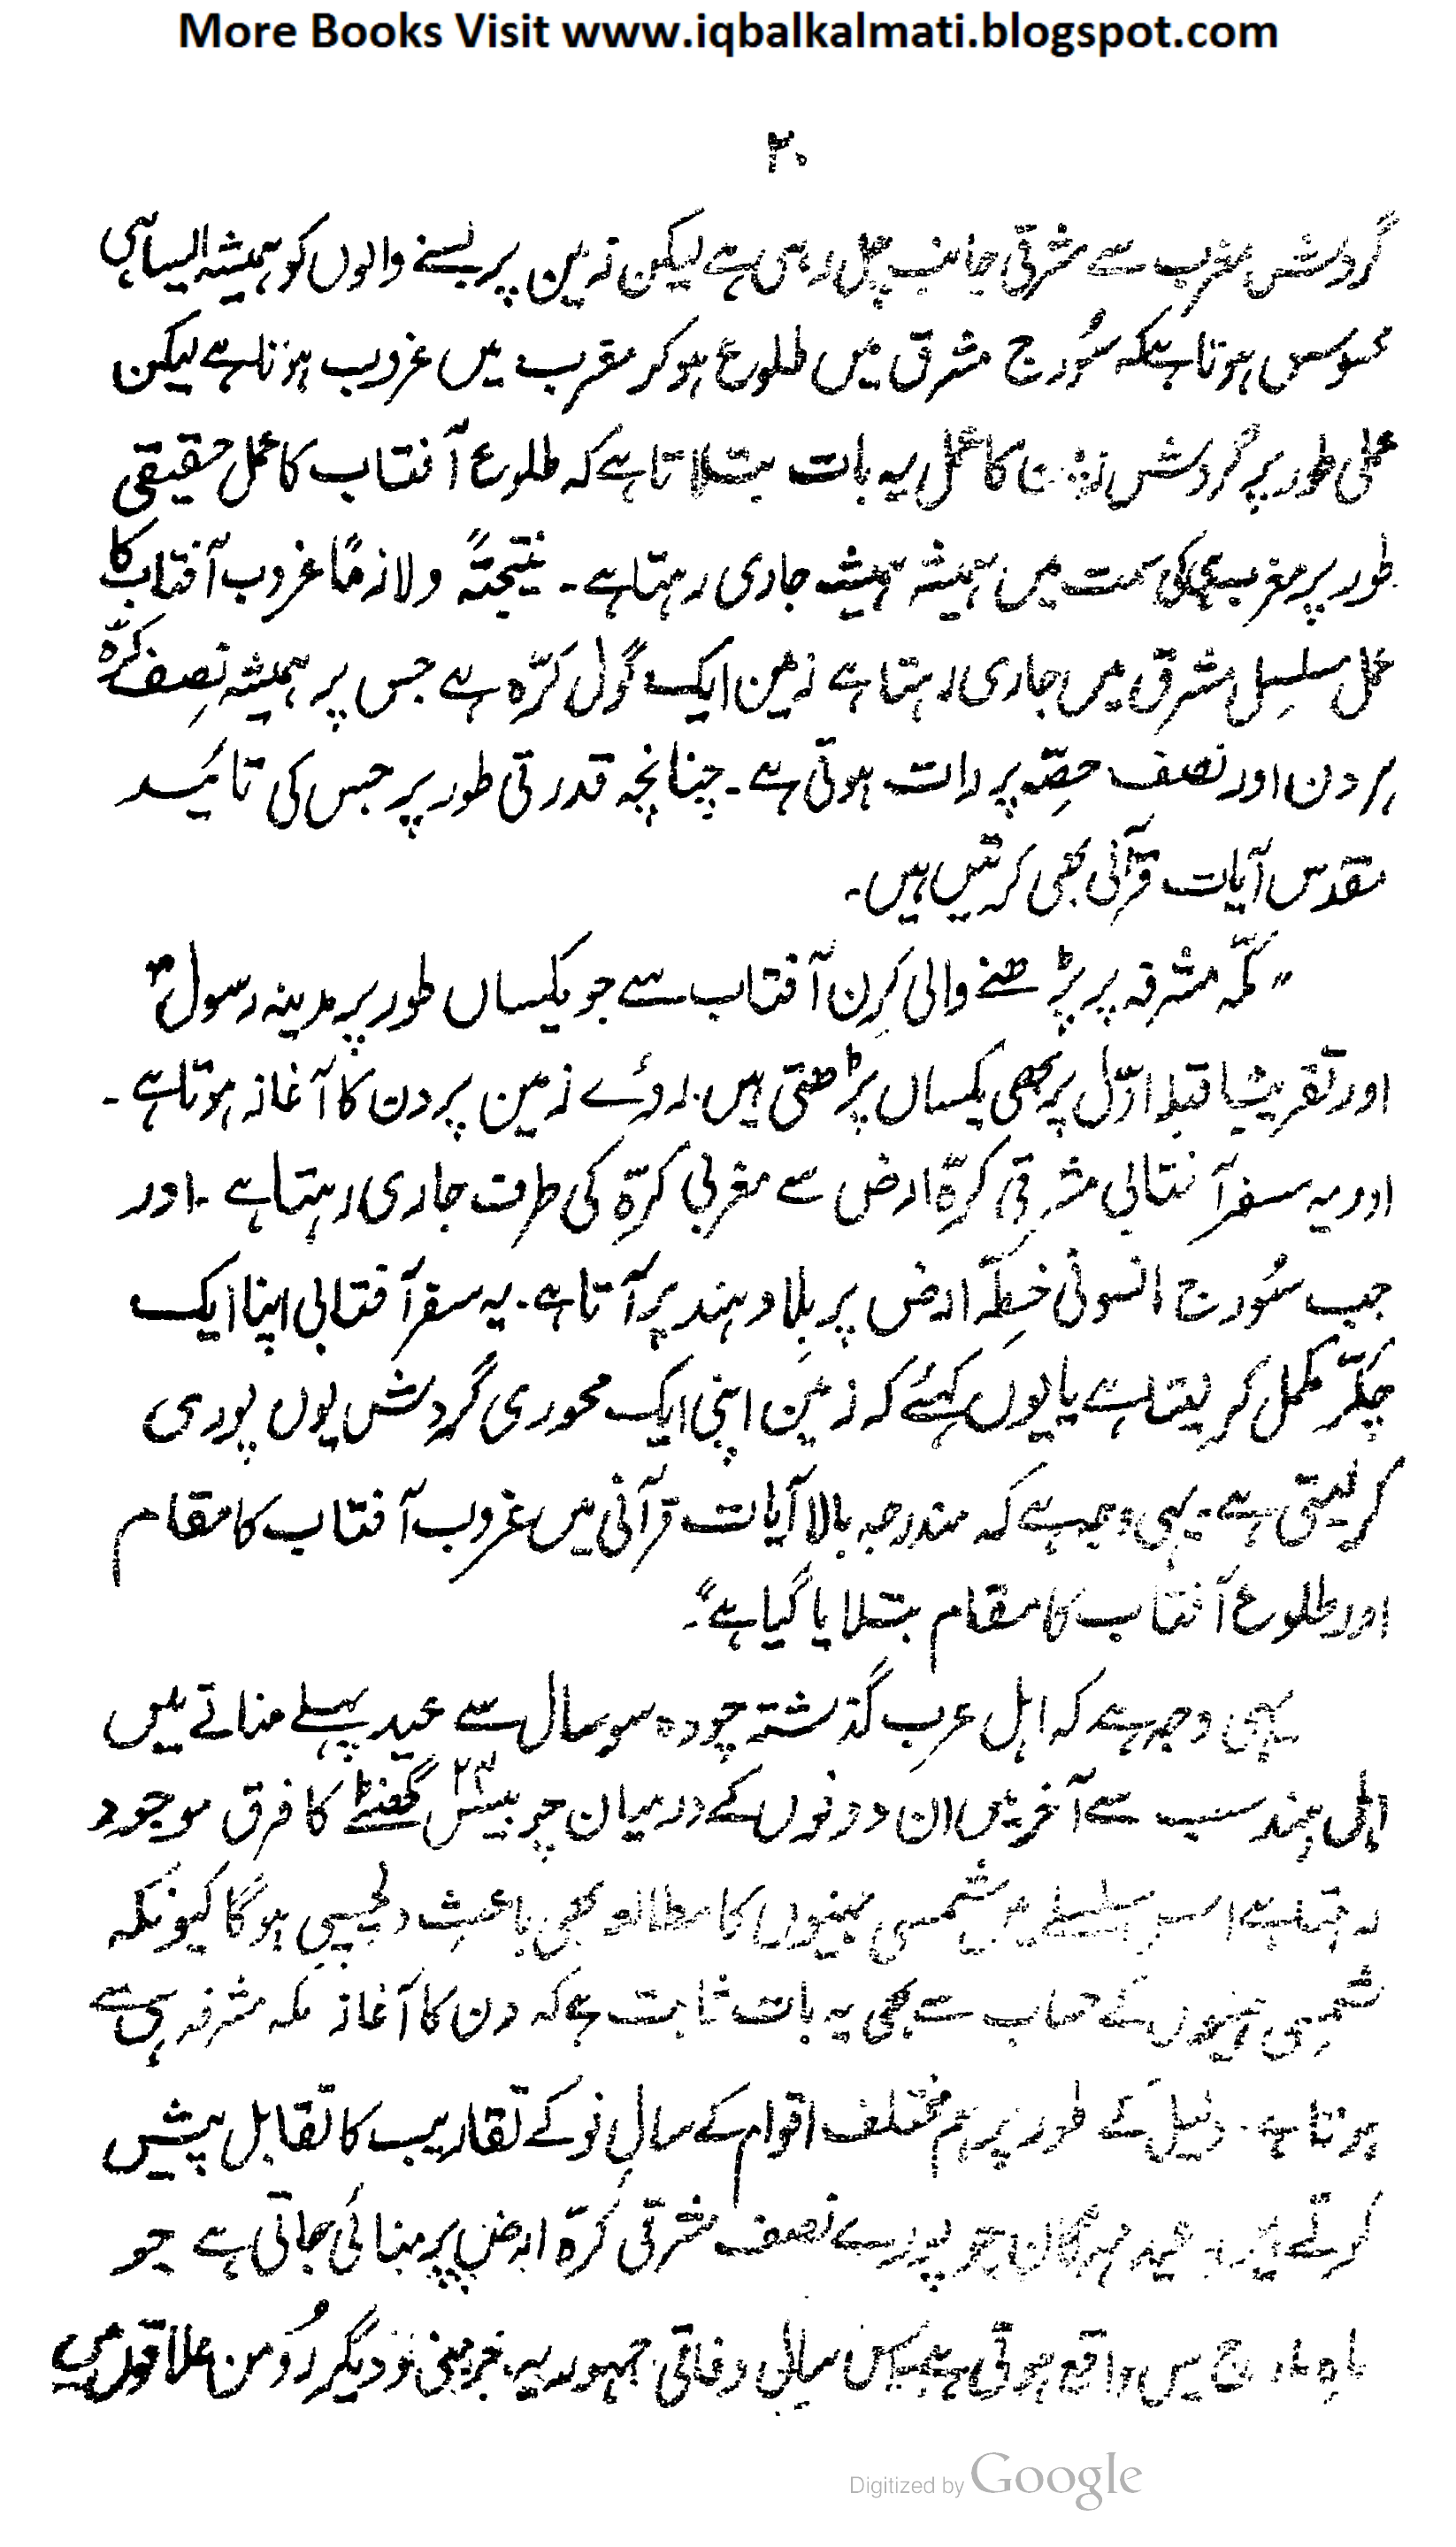 More Books Visit www.iqbalkalmati.blogspot.com
۲۰
گردش مغرب سے مشرقی جانب چل رہی ہے لیکن زمین پر بسنے والوں کو ہمیشہ ایسا ہی
محسوس ہوتا ہے کہ سُورج مشرق میں طلوع ہو کر مغرب میں غروب ہوتا ہے لیکن
عملی طور پر گردش زمین کا عمل یہ بات بتلاتا ہے کہ طلوع آفتاب کا عمل حقیقی
طور پر مغرب ہی کی سمت میں ہمیشہ ہمیشہ جاری رہتا ہے۔ نتیجتہً و لازماً غروب آفتاب کا
عمل مسلسل مشرق میں جاری رہتا ہے زمین ایک گول کرّہ ہے جس پر ہمیشہ نِصف کرّہ
پر دن اور نصف حِصّہ پر رات ہوتی ہے۔ چنانچہ قدرتی طور پر جس کی تائید
مقدس آیات قرآنی بھی کرتیں ہیں۔
"مکّہ مشرفہ پر پڑھنے والی کِرن آفتاب سے جو یکساں طور پر مدینہ رسولؐ
اور تقریباً قبلہ اوّل پر بھی یکساں پڑھتی ہیں۔ روئے زمین پر دن کا آغاز ہوتا ہے۔
اور یہ سفر آفتابی مشرقی کرّہ ارض سے مغربی کرّہ کی طرف جاری رہتا ہے۔ اور
جب سُورج انسونی خِطّہ ارض پر بِلاد ہند پر آتا ہے۔ یہ سفر آفتابی اپنا ایک
چکّر مکمل کر لیتا ہے یا یوں کہئے کہ زمین اپنی ایک محوری گردش یوں پوری
کر لیتی ہے۔ یہی وجہ ہے کہ مندرجہ بالا آیات قرآنی میں غروب آفتاب کا مقام
اور طلوع آفتاب کا مقام بتلایا گیا ہے"۔
یہی وجہ ہے کہ اہل عرب گذشتہ چودہ سو سال سے عید پہلے مناتے ہیں
اہل ہند سب سے آخر میں ان دونوں کے درمیان چوبیس ۲۴ گھنٹے کا فرق موجود
رہتا ہے اس سلسلے میں شمسی مہینوں کا مطالعہ بھی باعث دلچسپی ہوگا کیونکہ
شمسی مہینوں کے حساب سے بھی یہ بات ثابت ہے کہ دن کا آغاز مکہ مشرفہ ہی سے
ہوتا ہے۔ دلیل کے طور پر ہم مختلف اقوام کے سالِ نو کے تقاریب کا تقابل پیش
کرتے ہیں۔ عید مہرگان جو پورے نصف مشرقی کُرّہ ارض پر منائی جاتی ہے جو
ماہ مارچ میں واقع ہوتی ہے وفاقی جمہوریہ جرمنی و دیگر رُومن علاقوں میں
Digitized by Google